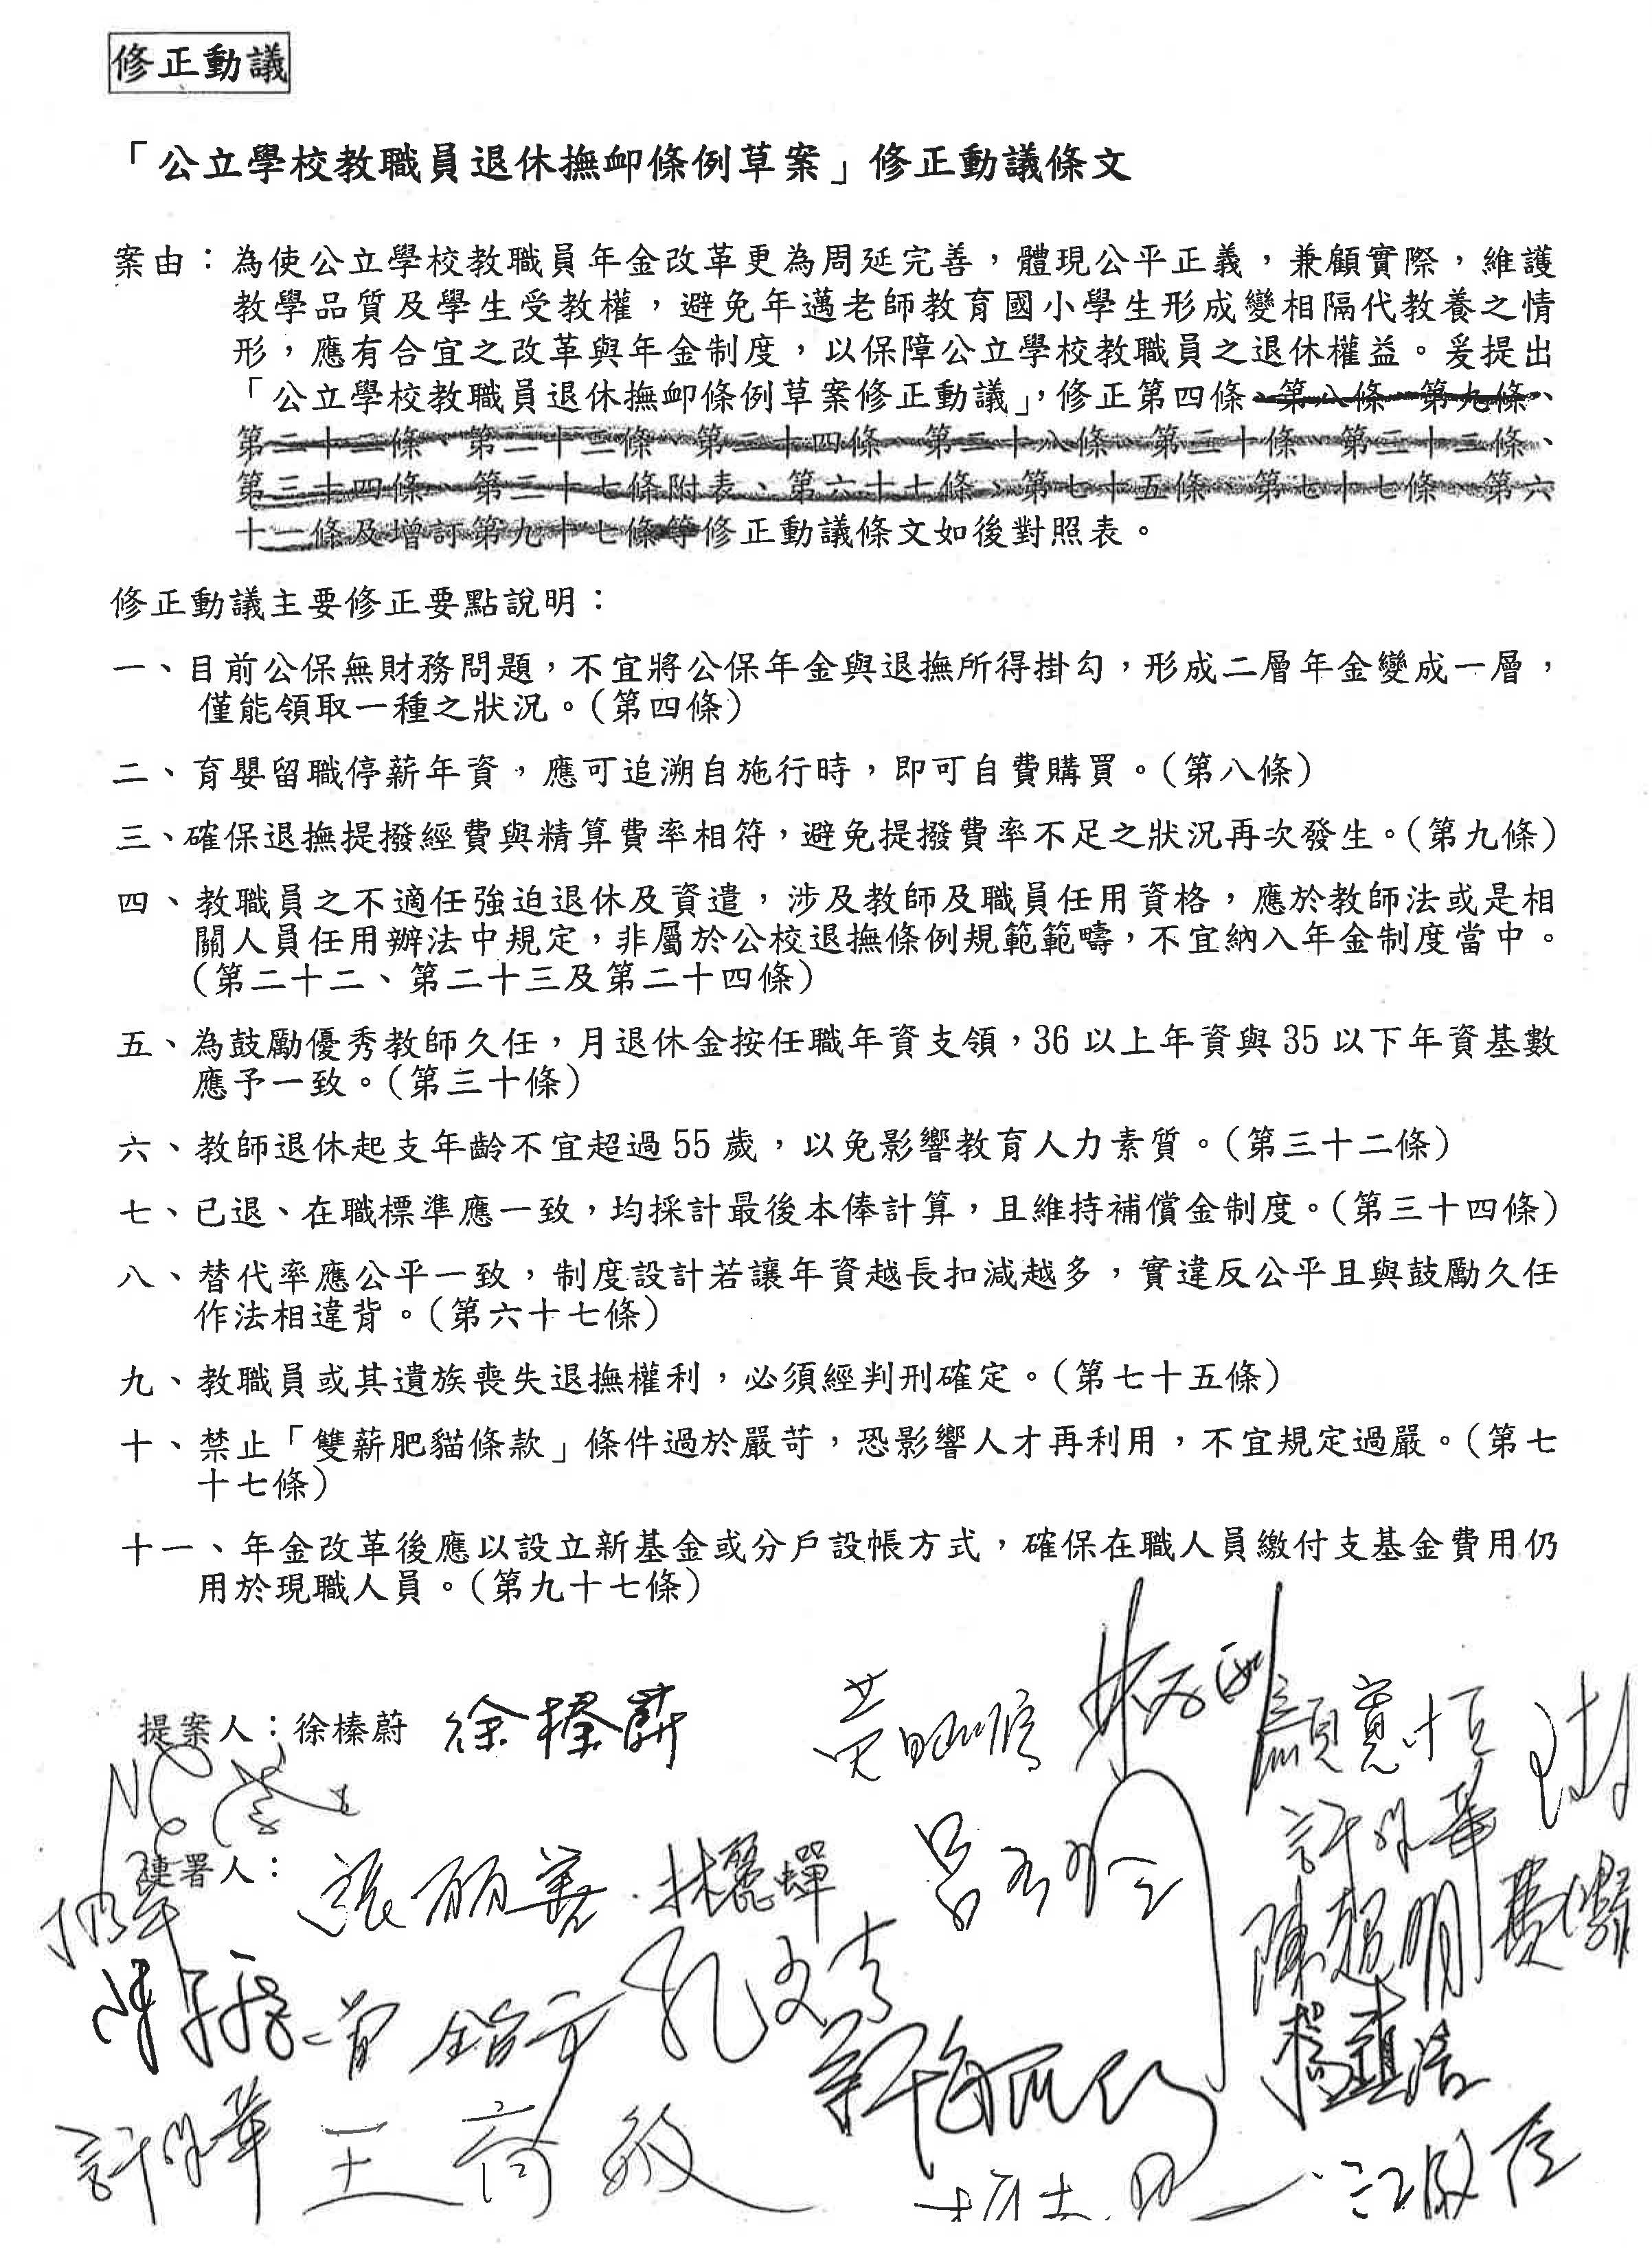 修正動議
「公立學校教職員退休撫卹條例草案」修正動議條文
案由：為使公立學校教職員年金改革更為周延完善，體現公平正義，兼顧實際，維護
教學品質及學生受教權，避免年邁老師教育國小學生形成變相隔代教養之情
形，應有合宜之改革與年金制度，以保障公立學校教職員之退休權益。爰提出
「公立學校教職員退休撫卹條例草案修正動議」，修正第四條、第八條、第九條、
第二十二條、第二十三條、第二十四條、第二十八條、第三十條、第三十二條、
第三十四條、第三十七條附表、第六十七條、第七十五條、第七十七條、第六
十一條及增訂第九十七條等修正動議條文如後對照表。
修正動議主要修正要點說明：
一、目前公保無財務問題，不宜將公保年金與退撫所得掛勾，形成二層年金變成一層，
僅能領取一種之狀況。（第四條）
二、育嬰留職停薪年資，應可追溯自施行時，即可自費購買。（第八條）
三、確保退撫提撥經費與精算費率相符，避免提撥費率不足之狀況再次發生。（第九條）
四、教職員之不適任強迫退休及資遣，涉及教師及職員任用資格，應於教師法或是相
關人員任用辦法中規定，非屬於公校退撫條例規範範疇，不宜納入年金制度當中。
（第二十二、第二十三及第二十四條）
五、為鼓勵優秀教師久任，月退休金按任職年資支領，36 以上年資與 35 以下年資基數
應予一致。（第三十條）
六、教師退休起支年齡不宜超過 55 歲，以免影響教育人力素質。（第三十二條）
七、已退、在職標準應一致，均採計最後本俸計算，且維持補償金制度。（第三十四條）
八、替代率應公平一致，制度設計若讓年資越長扣減越多，實違反公平且與鼓勵久任
作法相違背。（第六十七條）
九、教職員或其遺族喪失退撫權利，必須經判刑確定。（第七十五條）
十、禁止「雙薪肥貓條款」條件過於嚴苛，恐影響人才再利用，不宜規定過嚴。（第七
十七條）
十一、年金改革後應以設立新基金或分戶設帳方式，確保在職人員繳付支基金費用仍
用於現職人員。（第九十七條）
提案人：徐榛蔚 徐榛蔚 黃昭順 顏寬恒
連署人： 張麗善 林麗蟬 呂玉玲 許淑華
陳超明 費鴻泰
曾銘宗 孔文吉
楊鎮浯
許淑華 王育敏 江啟臣